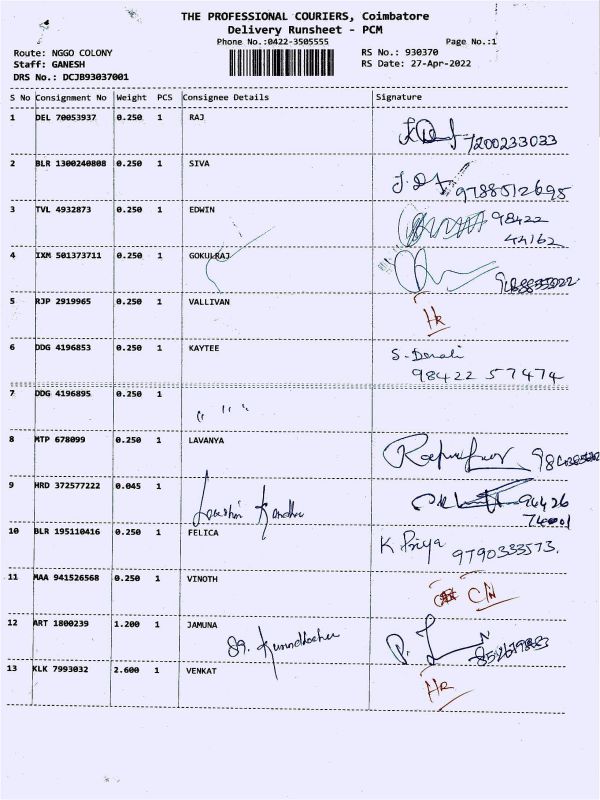 THE PROFESSIONAL COURIERS, Coimbatore
Delivery Runsheet - PCM
Phone No.:0422-3505555 Page No.:1
Route: NGGO COLONY RS No.: 930370
Staff: GANESH RS Date: 27-Apr-2022
DRS No.: DCJB93037001
S No Consignment No Weight PCS Consignee Details Signature
1 DEL 70053937 0.250 1 RAJ 7200233033
2 BLR 1300240808 0.250 1 SIVA J. D 9788512695
3 TVL 4932873 0.250 1 EDWIN 98422
44162
4 IXM 501373711 0.250 1 GOKULRAJ
5 RJP 2919965 0.250 1 VALLIVAN HR
6 DDG 4196853 0.250 1 KAYTEE S. Denali
98422 57474
7 DDG 4196895 0.250 1 " " "
8 MTP 678099 0.250 1 LAVANYA
9 HRD 372577222 0.045 1 94426
74001
10 BLR 195110416 0.250 1 FELICA K Priya
9790333573.
11 MAA 941526568 0.250 1 VINOTH CN
12 ART 1800239 1.200 1 JAMUNA
13 KLK 7993032 2.600 1 VENKAT HR